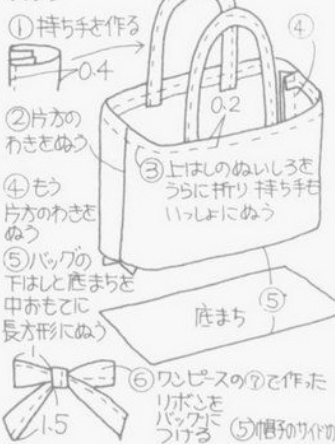 ①持ち手を作る
0.4
④
0.2
②片方の
わきをぬう
③上はしのぬいしろを
うらに折り持ち手も
いっしょにぬう
④もう
片方のわきを
ぬう
⑤バッグの
下はしと底まちを
中おもてに
長方形にぬう
⑤
底まち
1.5
⑥ワンピースの⑦で作った
リボンを
バッグに
つける
⑤帽子のサイド